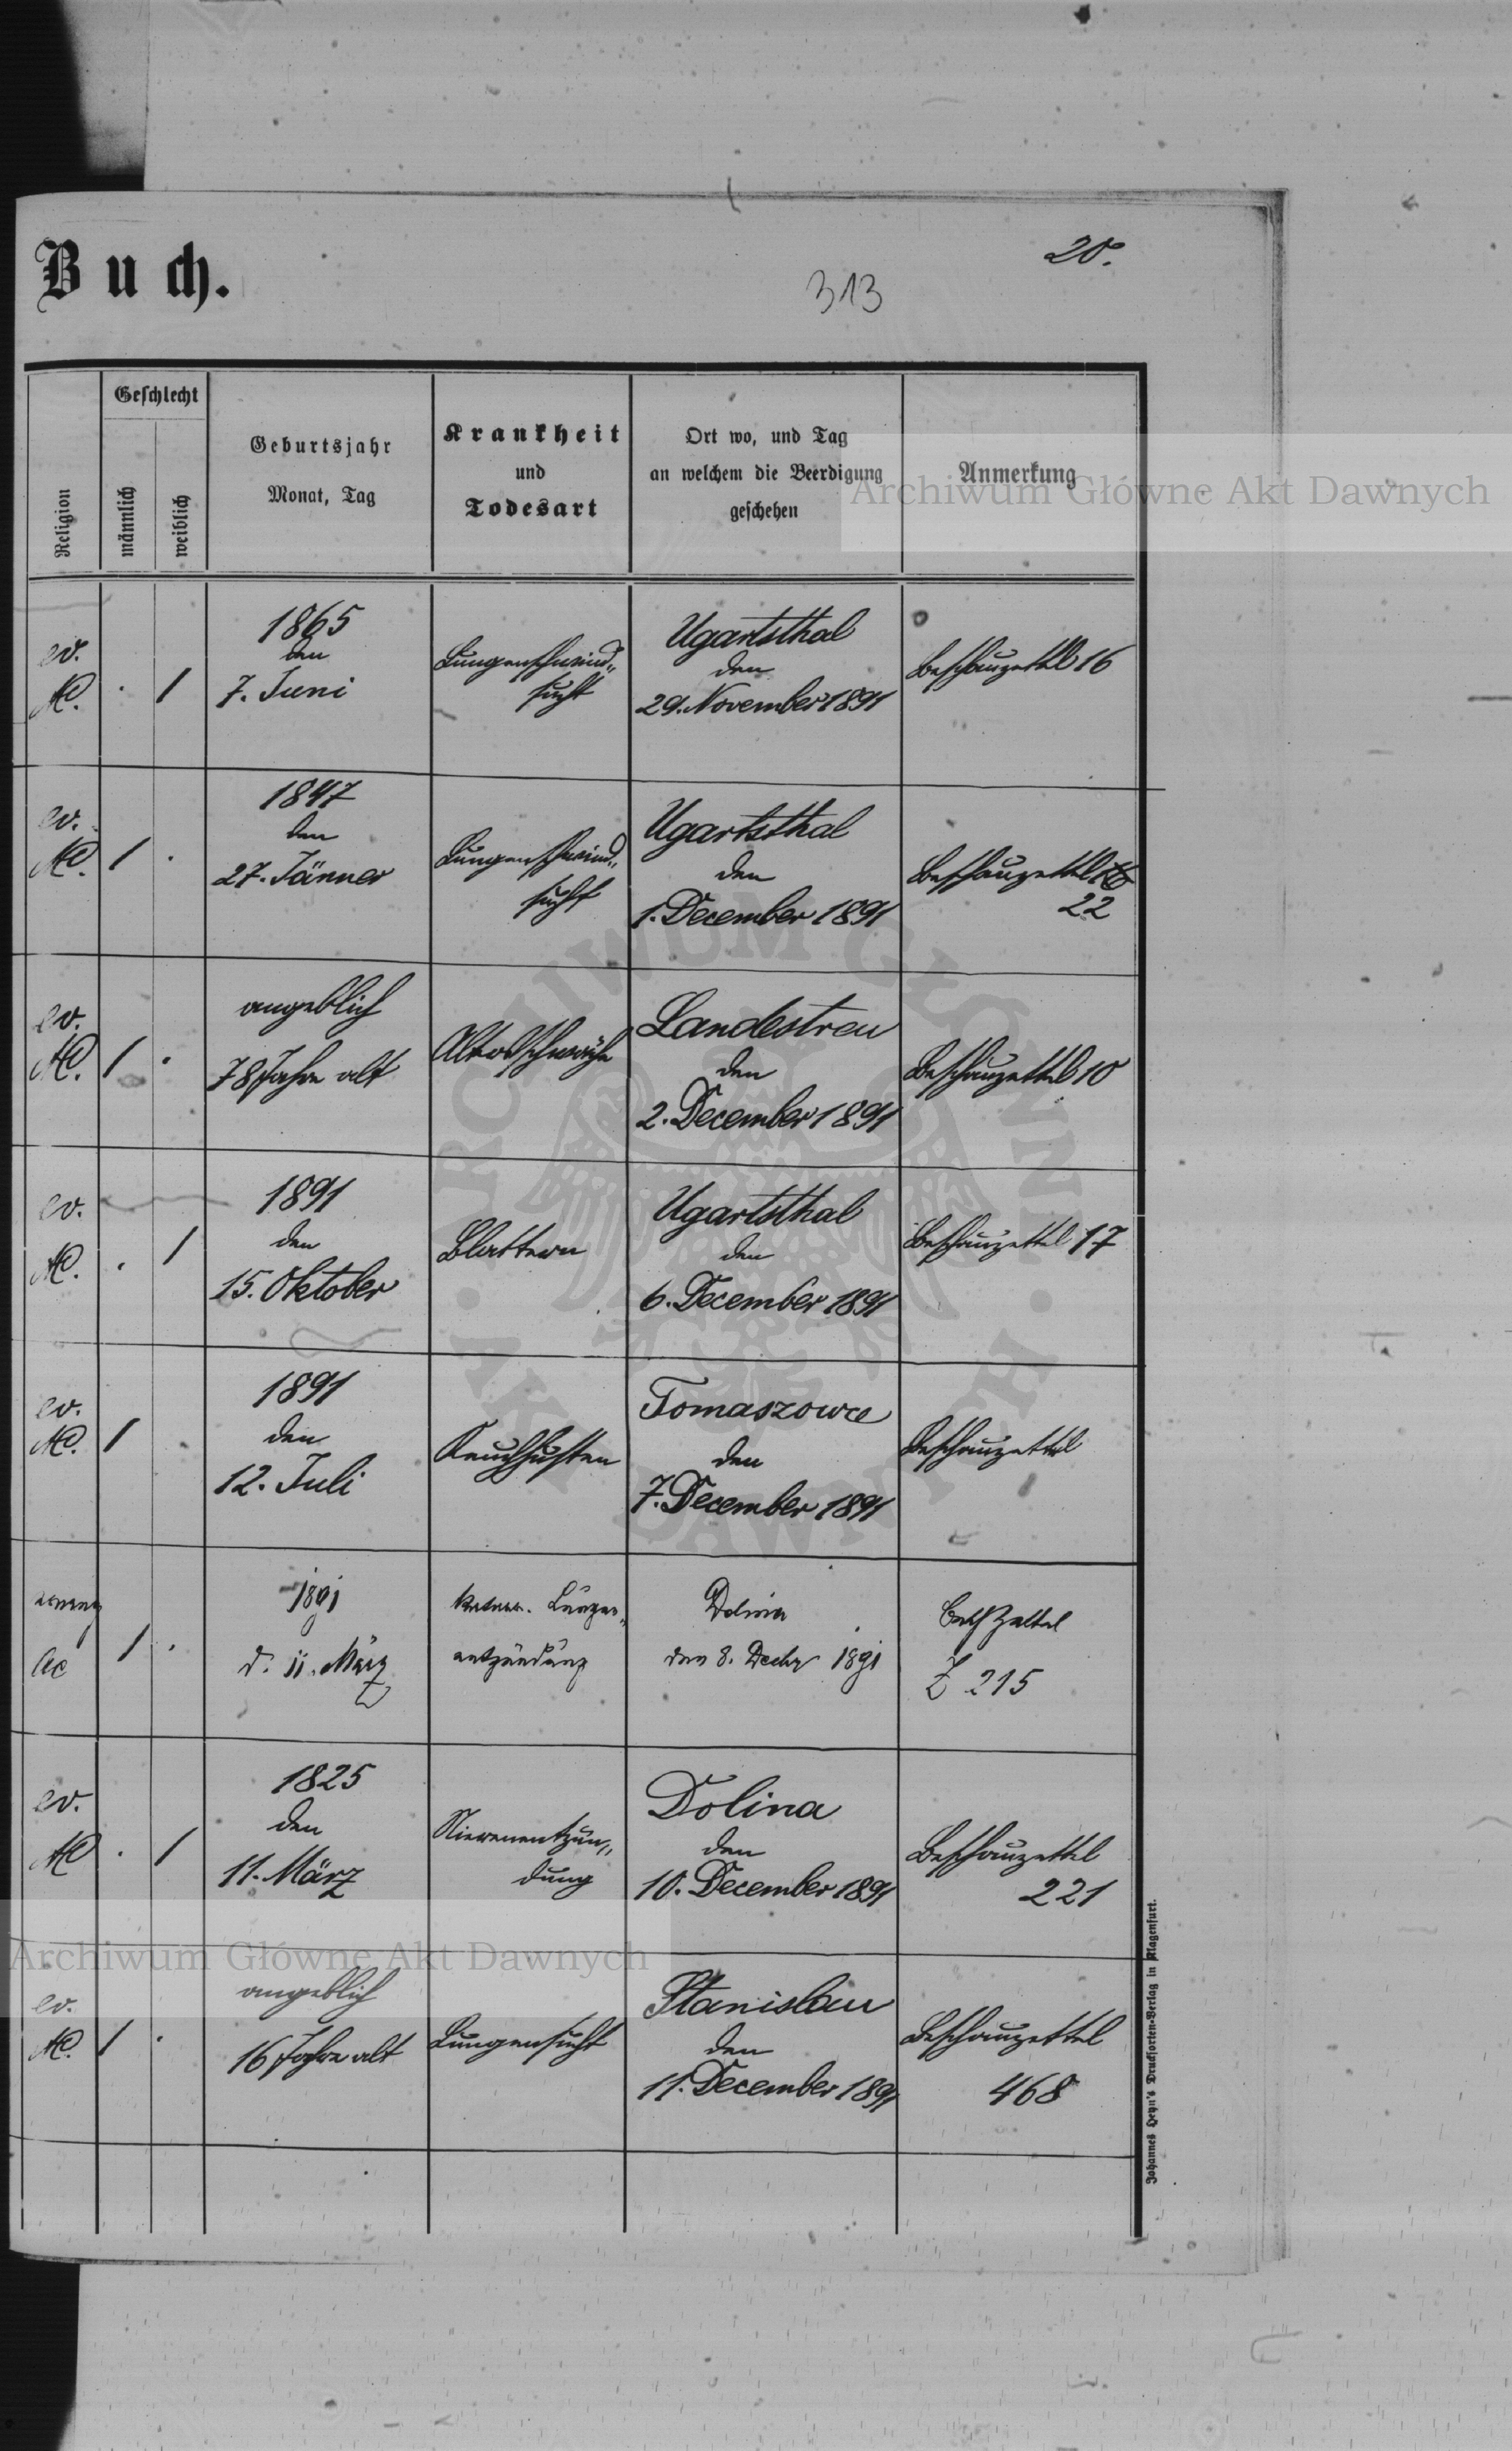 Buch.
313
20.
Religion
Geschlecht
männlich
weiblich
Geburtsjahr
Monat, Tag
Krankheit
und
Todesart
Ort wo, und Tag
an welchem die Beerdigung
geschehen
Anmerkung
Archiwum Główne Akt Dawnych
ev.
AC.
. 1
1865
den
7. Juni
Lungenschwind„
sucht
Ugartsthal
den
29. November 1891
Beschauzettel 16
ev.
AC.
1 .
1847
den
27. Jänner
Lungenschwind„
sucht
Ugartsthal
den
1. December 1891
Beschauzettel
22
ev.
AC.
1 .
angeblich
78 Jahre alt
Altersschwäche
Landestreu
den
2. December 1891
Beschauzettel 10
ev.
AC.
. 1
1891
den
15. Oktober
Blattern
Ugartsthal
den
6. December 1891
Beschauzettel 17
ev.
AC.
1 .
1891
den
12. Juli
Keuchhusten
Tomaszowce
den
7. December 1891
Beschauzettel
AC
1 .
1891
d. 11. März
Lungen„
entzündung
Dolina
den 8. Decbr 1891
Besch Zettel
Z 215
ev.
AC
. 1
1825
den
11. März
Nierenentzün„
dung
Dolina
den
10. December 1891
Beschauzettel
221
Archiwum Główne Akt Dawnych
ev.
AC.
1 .
angeblich
16 Jahre alt
Lungensucht
Stanislau
den
11. December 1891
Beschauzettel
468
Johannes Heyn's Drucksorten-Verlag in Klagenfurt.
ARCHIWUM GŁÓWNE
AKT DAWNYCH